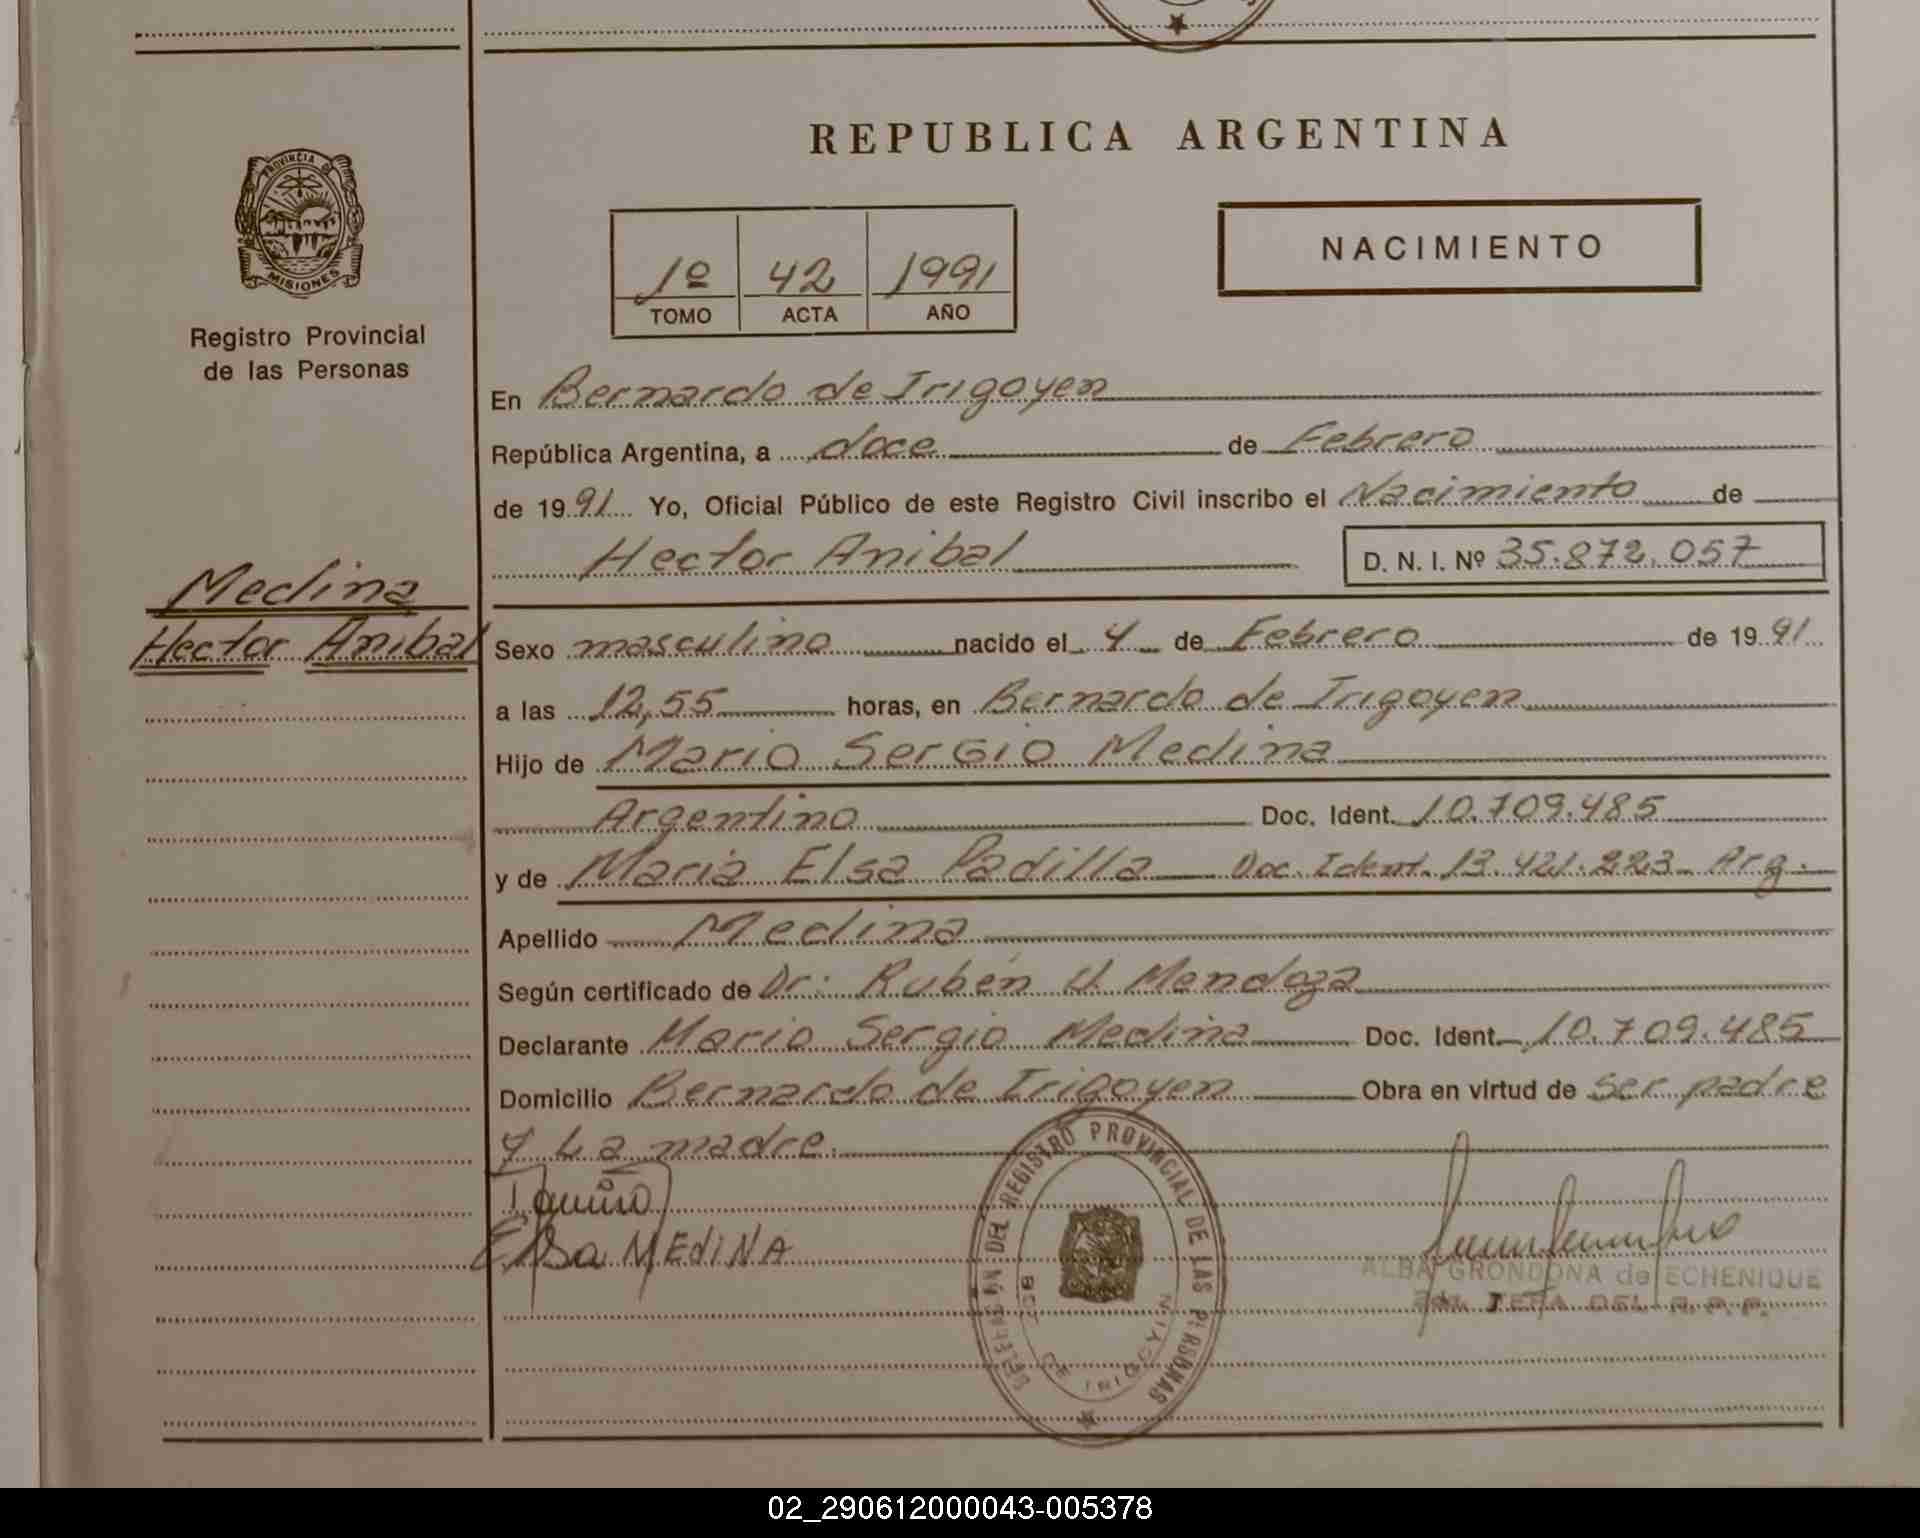 REPUBLICA ARGENTINA
PROVINCIA D
MISIONES
Registro Provincial
de las Personas
1º 42 1991
TOMO ACTA AÑO
NACIMIENTO
En Bernardo de Irigoyen
República Argentina, a doce de Febrero
de 1991 Yo, Oficial Público de este Registro Civil inscribo el Nacimiento de
Hector Anibal D. N. I. Nº 35.872.057
Medina
Hector Anibal
Sexo masculino nacido el 4 de Febrero de 1991
a las 12,55 horas, en Bernardo de Irigoyen
Hijo de Mario Sergio Medina
Argentino Doc. Ident. 10.709.485
y de Maria Elsa Padilla Doc. Ident. 13.421.223 Arg.
Apellido Medina
Según certificado de Dr: Rubén U. Mendoza
Declarante Mario Sergio Medina Doc. Ident. 10.709.485
Domicilio Bernardo de Irigoyen Obra en virtud de ser padre
y La madre.
Elsa MEdiNA
DEL REGISTRO PROVINCIAL DE LAS PERSONAS
ALBA GRONDONA de ECHENIQUE
JEFA DEL R.P.P.
02_290612000043-005378